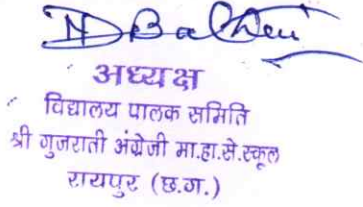 अध्यक्ष
विद्यालय पालक समिति
श्री गुजराती अंग्रेजी मा.हा.से.स्कूल
रायपुर (छ.ग.)